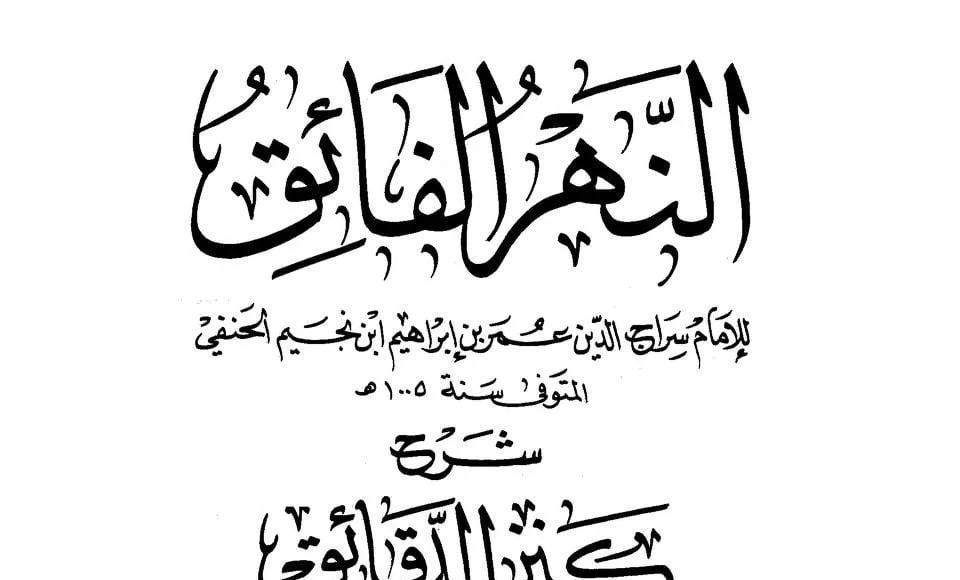 النَّهْرُ الفَائِقُ
لِلإِمَامْ سِرَاجِ الدِّين عُمَر بن إِبْرَاهِيم ابْن نجَيم الحَنفيْ
المتَوفىٰ سَنة ١٠٠٥ هـ
شَرْح
كَنز الدَّقَائِق